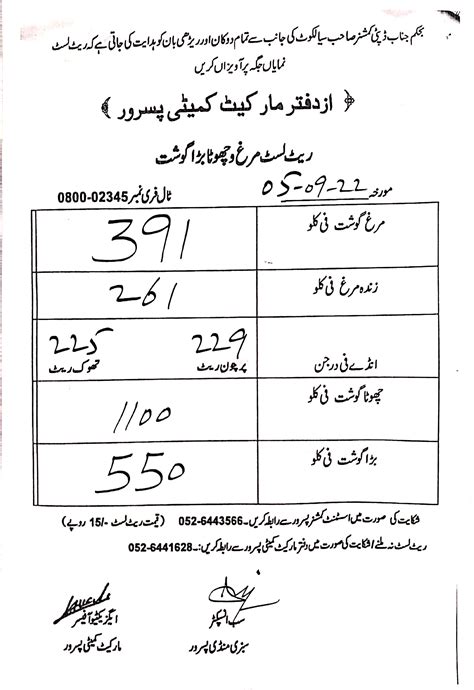 بحکم جناب ڈپٹی کمشنر صاحب سیالکوٹ کی جانب سے تمام دوکان اور ریڑھی بان کو ہدایت کی جاتی ہے کہ ریٹ لسٹ
نمایاں جگہ پر آویزاں کریں
﴿ از دفتر مارکیٹ کمیٹی پسرور ﴾
ریٹ لسٹ مرغ و چھوٹا بڑا گوشت
مورخہ 05-09-22 ٹال فری نمبر 0800-02345
مرغ گوشت فی کلو 391
زندہ مرغ فی کلو 261
انڈے فی درجن 229 پرچون ریٹ 225 تھوک ریٹ
چھوٹا گوشت فی کلو 1100
بڑا گوشت فی کلو 550
شکایت کی صورت میں اسسٹنٹ کمشنر پسرور سے رابطہ کریں۔ 052-6443566 (قیمت ریٹ لسٹ -/15 روپے)
ریٹ لسٹ نہ ملنے / شکایت کی صورت میں دفتر مارکیٹ کمیٹی پسرور سے رابطہ کریں:۔ 052-6441628
سب انسپکٹر ایگزیکٹو آفیسر
سبزی منڈی پسرور مارکیٹ کمیٹی پسرور